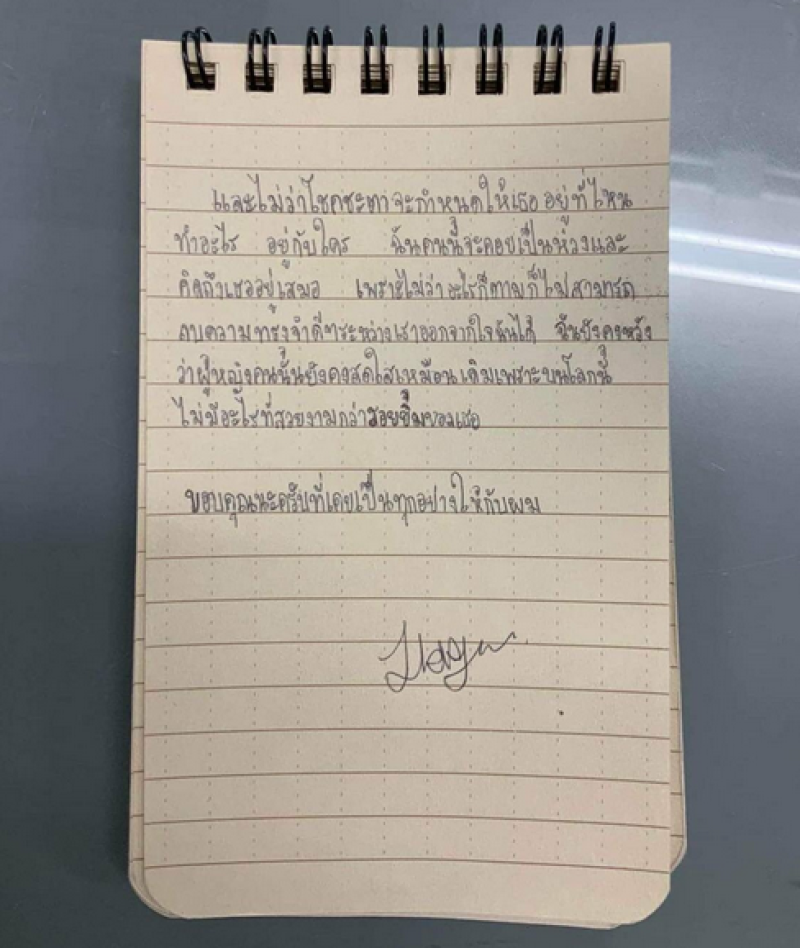 และไม่ว่าโชคชะตาจะกำหนดให้เธอ อยู่ที่ไหน
ทำอะไร อยู่กับใคร ฉันคนนี้จะคอยเป็นห่วงและ
คิดถึงเธออยู่เสมอ เพราะไม่ว่าอะไรก็ตามก็ไม่สามารถ
ลบความทรงจำดีๆระหว่างเราออกจากใจฉันได้ ฉันยังคงหวัง
ว่าผู้หญิงคนนั้นยังคงสดใสเหมือนเดิมเพราะบนโลกนี้
ไม่มีอะไรที่สวยงามกว่ารอยยิ้มของเธอ
ขอบคุณนะครับที่เคยเป็นทุกอย่างให้กับผม